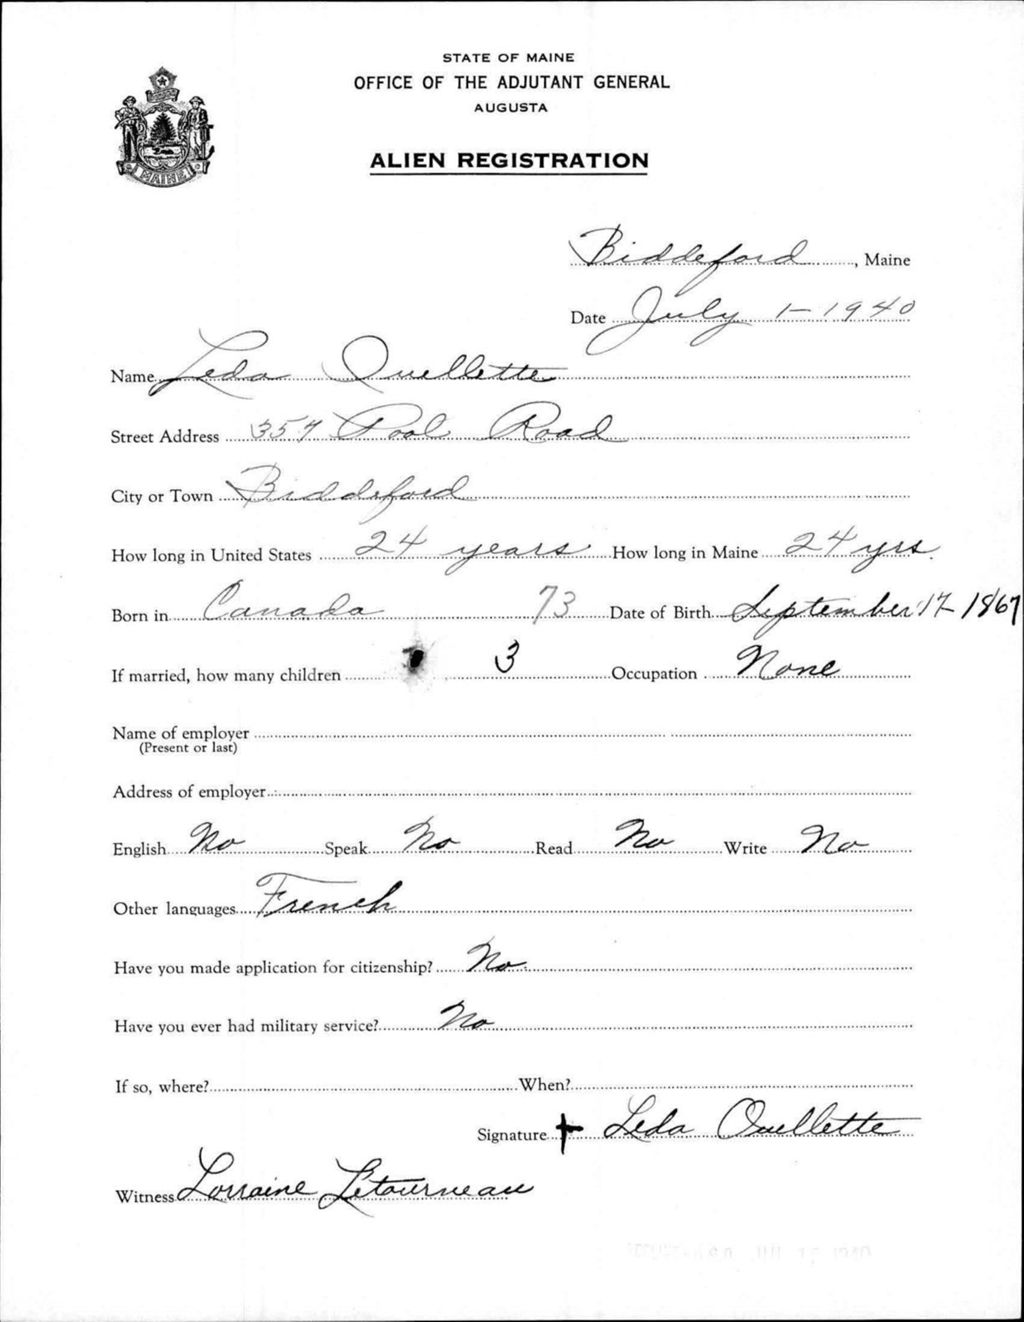 STATE OF MAINE
OFFICE OF THE ADJUTANT GENERAL
AUGUSTA
ALIEN REGISTRATION
MAINE
Biddeford, Maine
Date July 1-1940
Name Leda Ouellette
Street Address 357 Pool Road
City or Town Biddeford
How long in United States 24 years How long in Maine 24 yrs.
Born in Canada 73 Date of Birth September 17-1867
If married, how many children 3 Occupation None
Name of employer
(Present or last)
Address of employer
English No Speak No Read No Write No
Other languages French
Have you made application for citizenship? No
Have you ever had military service? No
If so, where? When?
Signature + Leda Ouellette
Witness Lorraine Letourneau